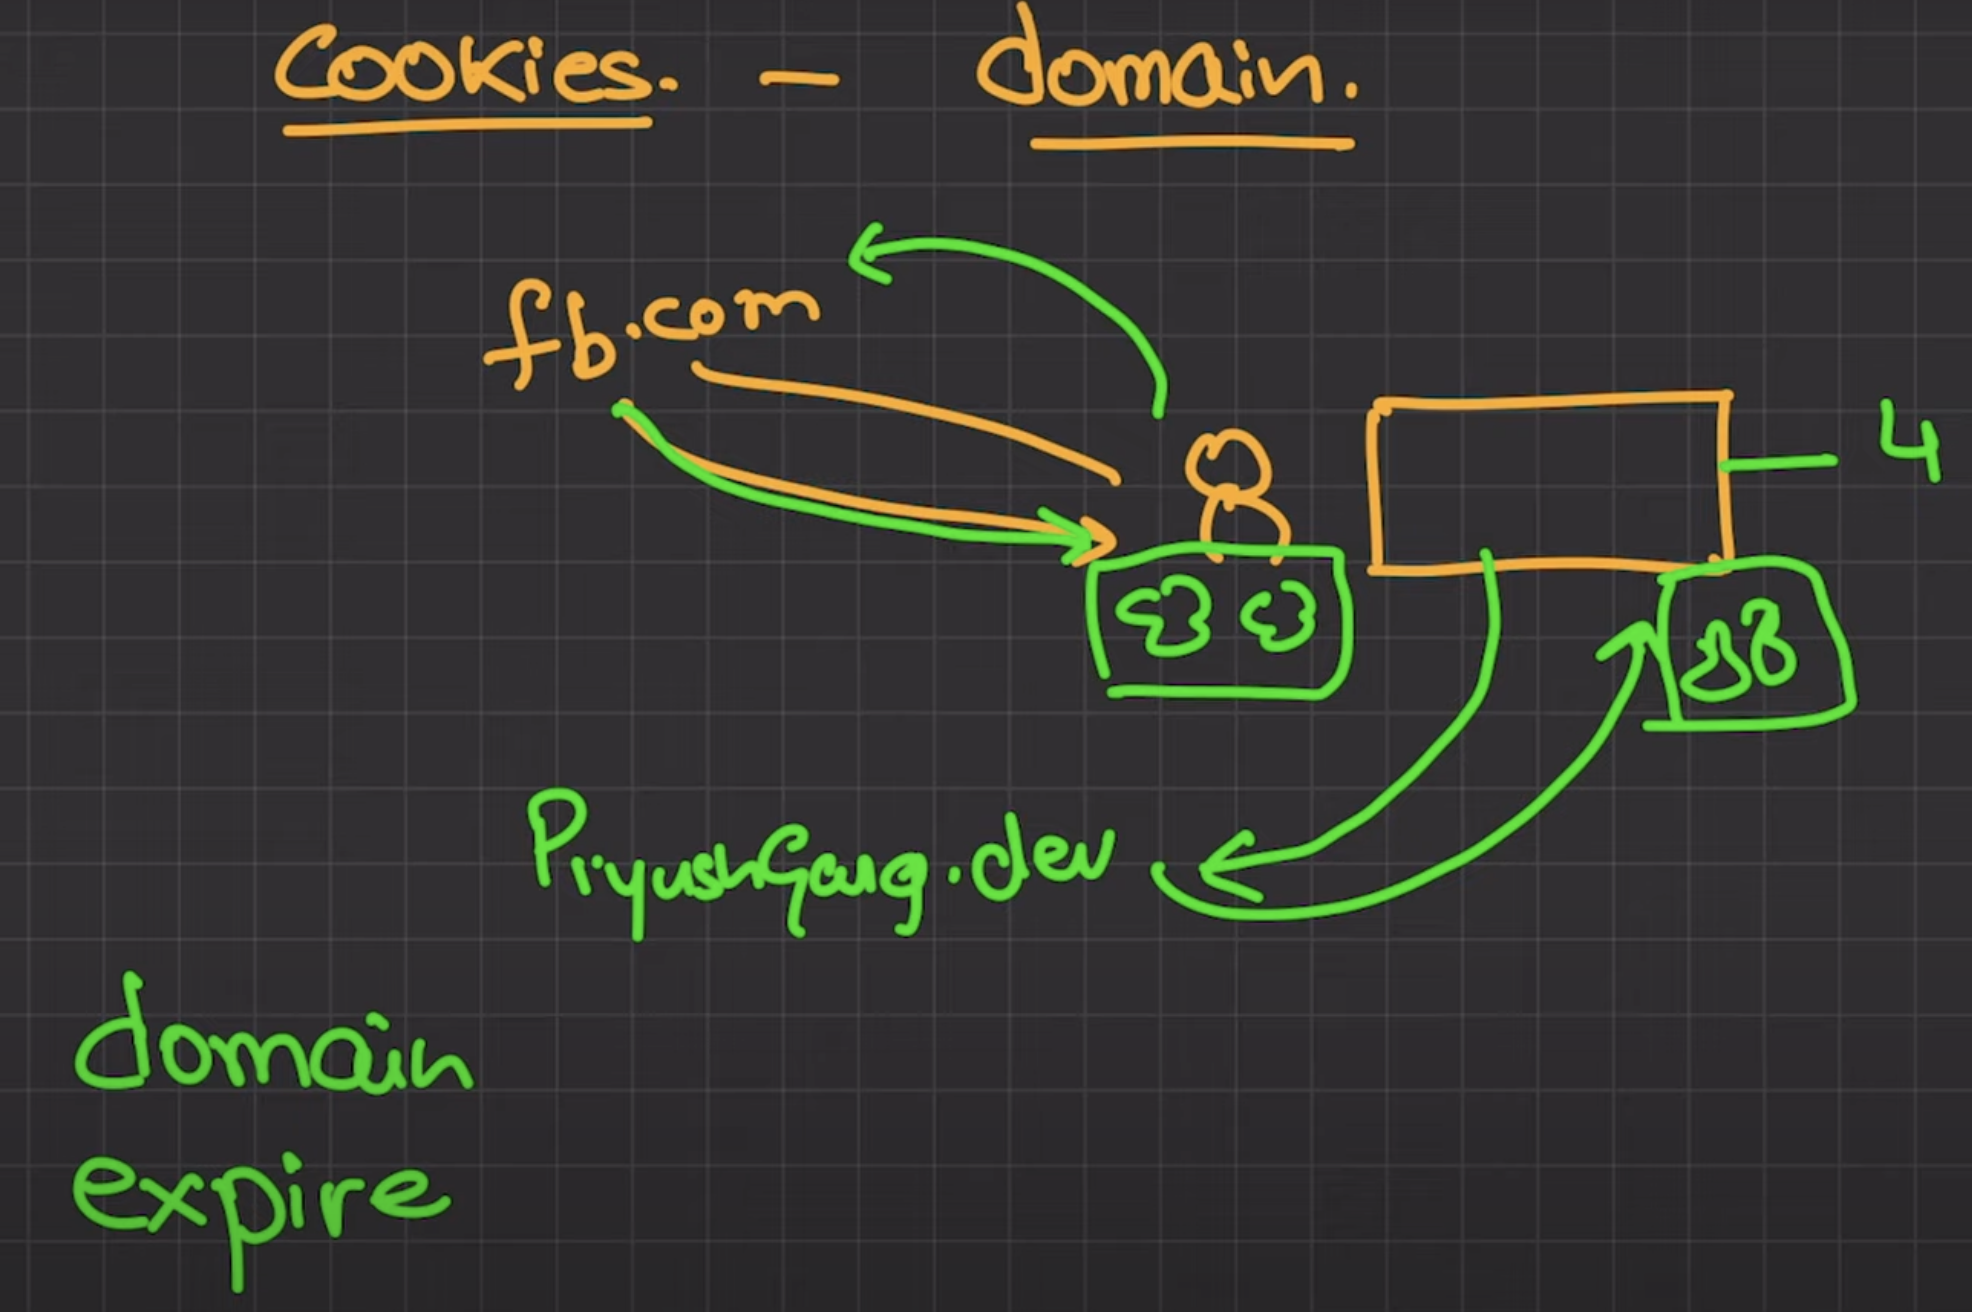 Cookies. - domain.
fb.com
4
PiyushGarg.dev
domain
expire